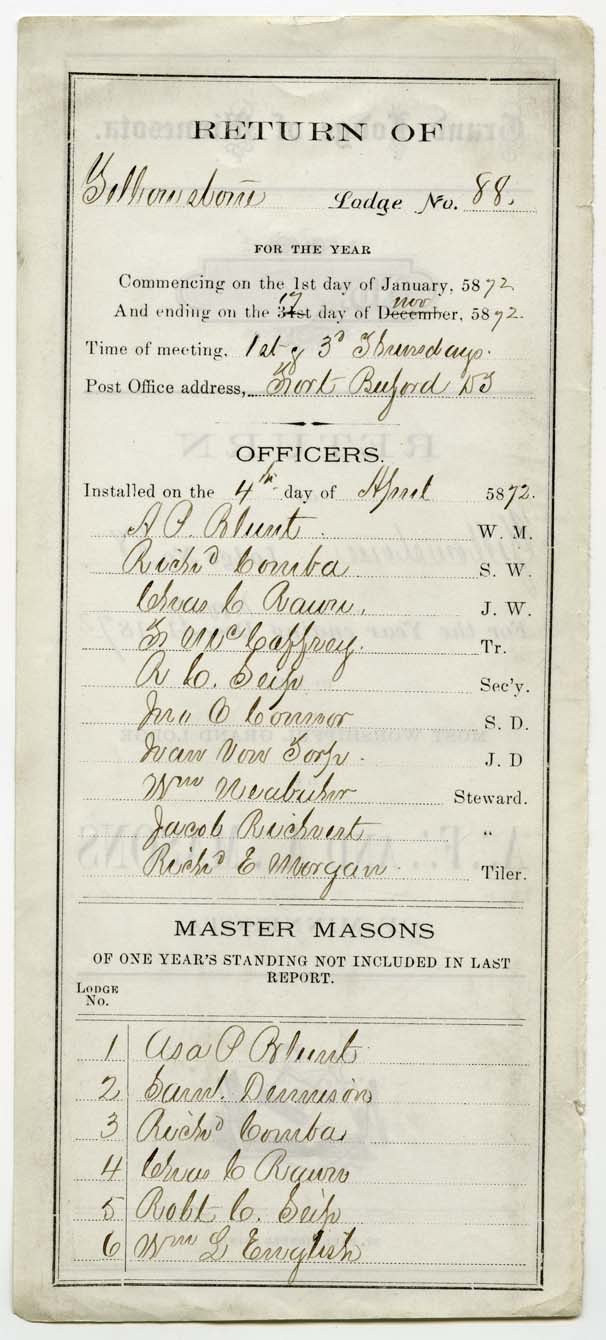 RETURN OF
Yellowstone Lodge No. 88.
FOR THE YEAR
Commencing on the 1st day of January, 5872
17 nov
And ending on the 31st day of December, 5872.
Time of meeting, 1st & 3d Thursdays.
Post Office address, Fort Buford DT
OFFICERS.
Installed on the 4th day of April 5872.
A P. Blunt. W. M.
Richd Comba S. W.
Chas C Rawn, J. W.
F. McCaffrey. Tr.
R C. Seip Sec'y.
Jno O Connor S. D.
Ivan Von Torp. J. D
Wm Neabuhr Steward.
Jacob Reichvert "
Richd E Morgan. Tiler.
MASTER MASONS
OF ONE YEAR'S STANDING NOT INCLUDED IN LAST
REPORT.
LODGE
No.
1 Asa P Blunt
2 Saml. Dennison
3 Richd Comba
4 Chas C Rawn
5 Robt C. Seip
6 Wm L English